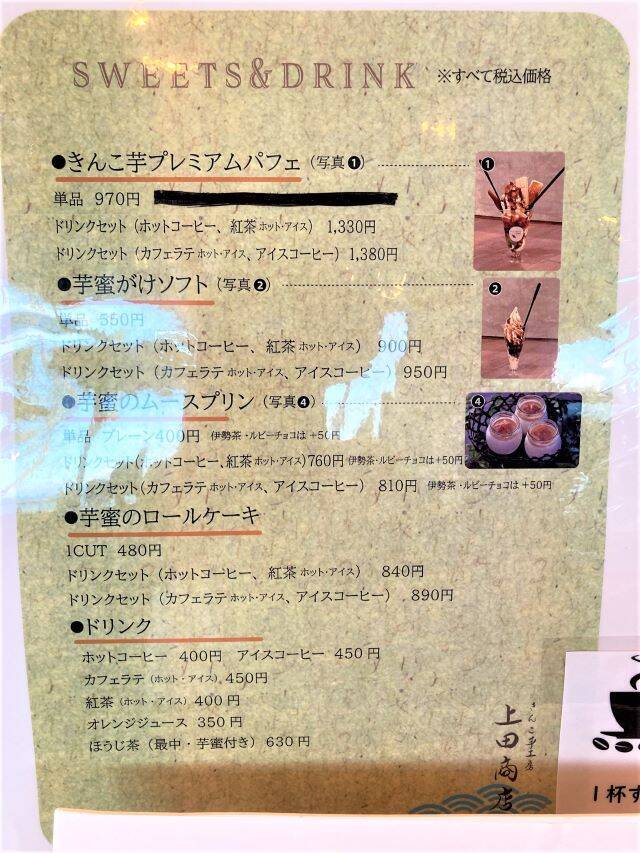 SWEETS&DRINK ※すべて税込価格
●きんこ芋プレミアムパフェ（写真❶）
❶
単品 970円
ドリンクセット（ホットコーヒー、紅茶ホット・アイス） 1,330円
ドリンクセット（カフェラテホット・アイス、アイスコーヒー） 1,380円
●芋蜜がけソフト（写真❷）
❷
単品 550円
ドリンクセット（ホットコーヒー、紅茶ホット・アイス） 900円
ドリンクセット（カフェラテホット・アイス、アイスコーヒー） 950円
●芋蜜のムースプリン（写真❹）
❹
単品 プレーン400円 伊勢茶・ルビーチョコは+50円
ドリンクセット（ホットコーヒー、紅茶ホット・アイス）760円 伊勢茶・ルビーチョコは+50円
ドリンクセット（カフェラテホット・アイス、アイスコーヒー） 810円 伊勢茶・ルビーチョコは+50円
●芋蜜のロールケーキ
1CUT 480円
ドリンクセット（ホットコーヒー、紅茶ホット・アイス） 840円
ドリンクセット（カフェラテホット・アイス、アイスコーヒー） 890円
●ドリンク
ホットコーヒー 400円 アイスコーヒー 450円
カフェラテ（ホット・アイス）450円
紅茶（ホット・アイス）400円
オレンジジュース 350円
ほうじ茶（最中・芋蜜付き）630円
きんこ芋工房
上田商店
1杯す